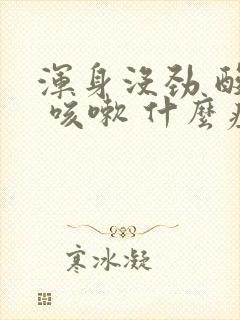 渾身沒勁
咳嗽 什麼
寒冰凝